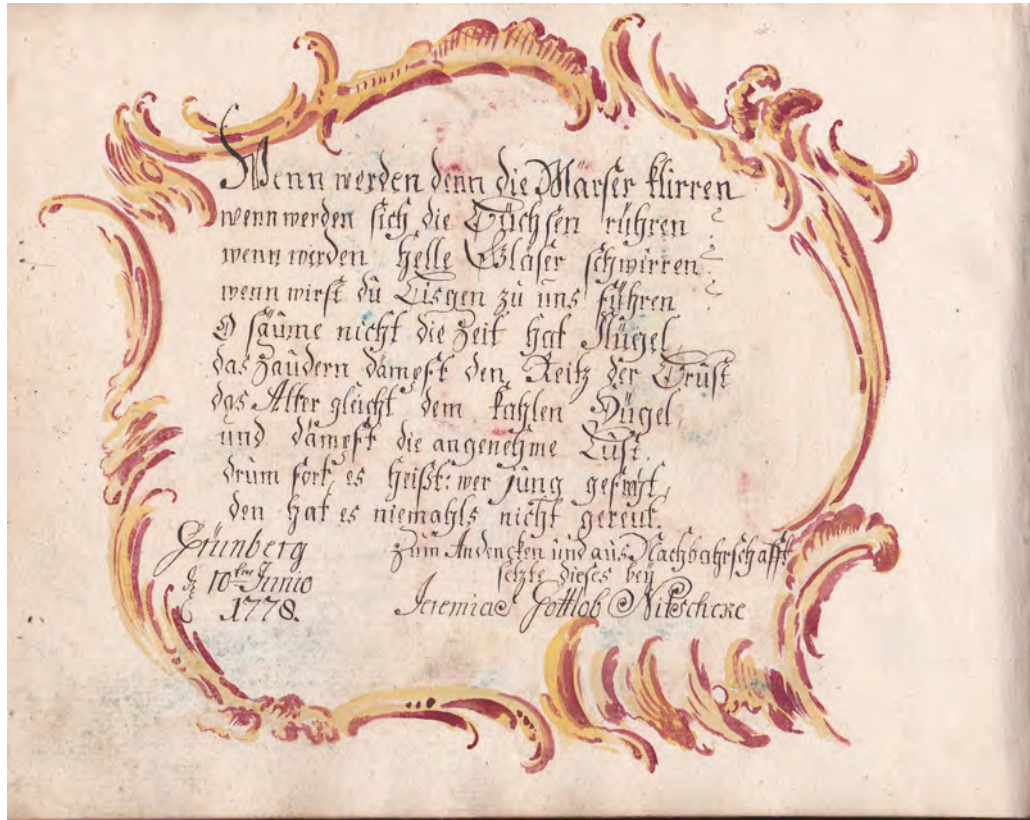 Wenn werden denn die Märser klirren
wenn werden sich die Büchsen rühren ?
wenn werden helle Gläser schwirren ?
wenn wirst du Lisgen zu uns führen ?
O säume nicht die Zeit hat Flügel,
das Zaudern dämpft den Reitz der Brust
das Alter gleicht dem kahlen Hügel,
und dämpft die angenehme Lust.
drum fort, es heißt: wer jung gefreyt,
den hat es niemahls nicht gereut.
Grünberg
d 10ten Junio
1778.
Zum Andencken und aus Nachbahrschafft
setzte dieses bey
Jeremias Gottlob Nitschcke